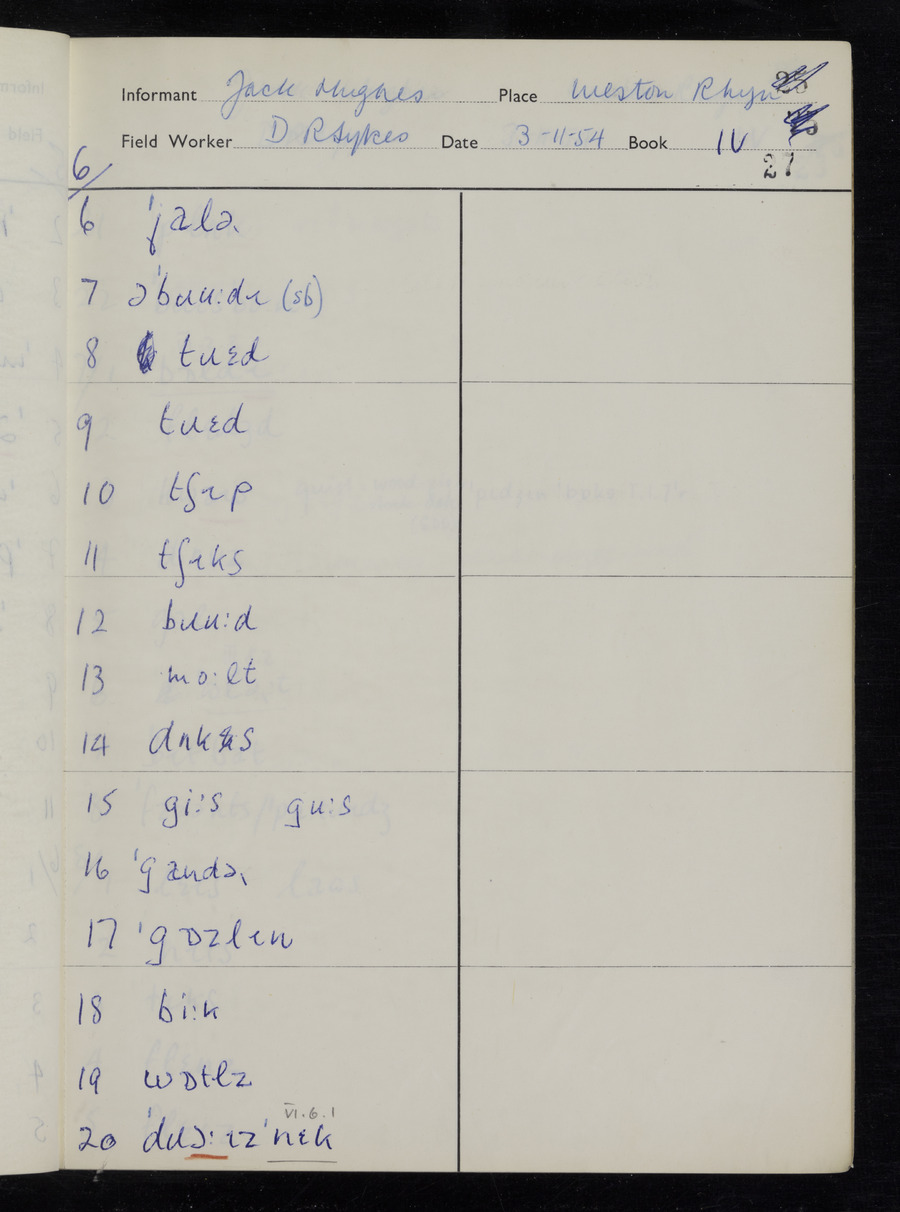 Informant Jack Hughes Place Weston Rhyn
Field Worker D R Sykes Date 3-11-54 Book IV
27
6/
6 ˈjalə˞
7 əˈbɹu:dɪ (sb)
8 tɹɛd
9 tɹɛd
10 tʃɪp
11 tʃɪks
12 bɹu:d
13 mo:lt
14 dʌks
15 gi:s gu:s
16 ˈgandə˞
17 ˈgɒzlɪn
18 bi:k
19 wɒtlz
VI.6.1
20 ˈdɹɔ:ɪzˈnɛk